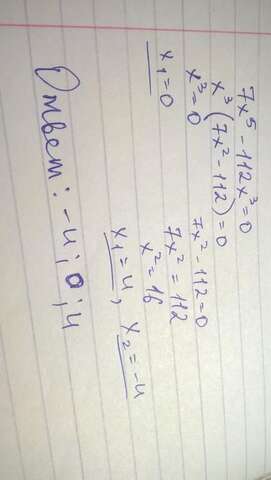 7x⁵ - 112x³ = 0
x³ (7x² - 112) = 0
x³ = 0 7x² - 112 = 0
7x² = 112
x₁ = 0 x² = 16
x₁ = 4, x₂ = -4
Ответ: -4; 0; 4